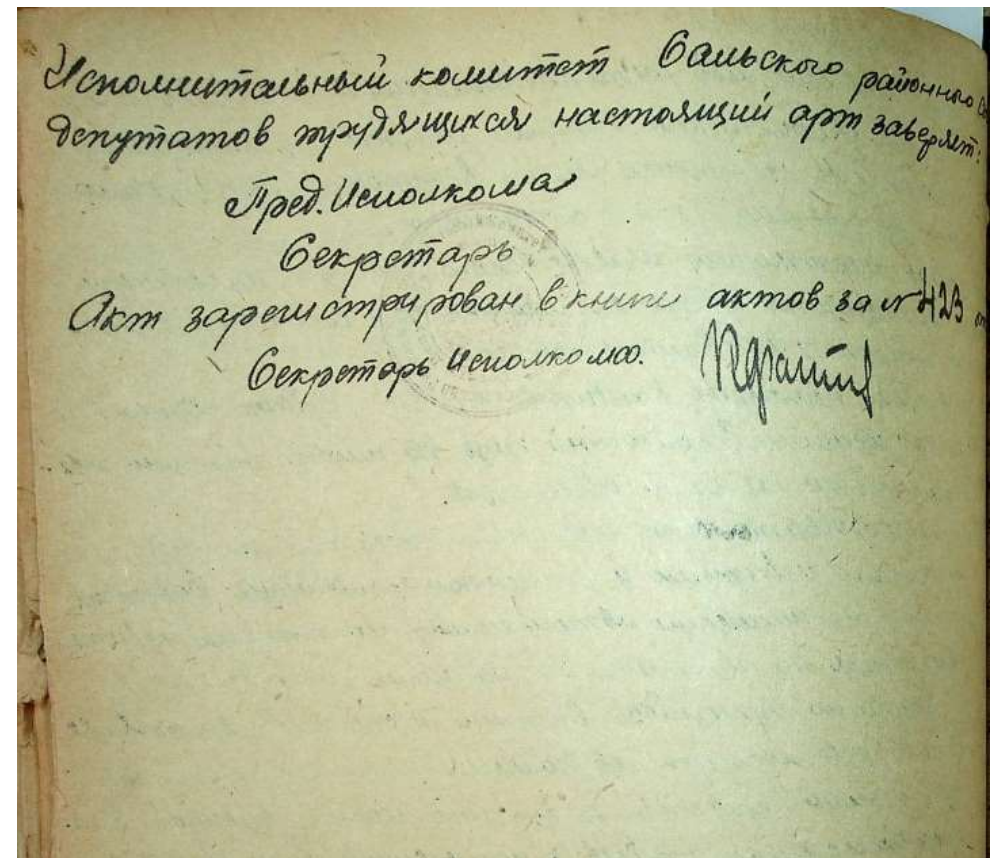 Исполнительный комитет Сальского районного Со
депутатов трудящихся настоящий арт заверяет:
Пред. Исполкома
Секретарь
Акт зарегистрирован в книге актов за № 423 от
Секретарь Исполкома.